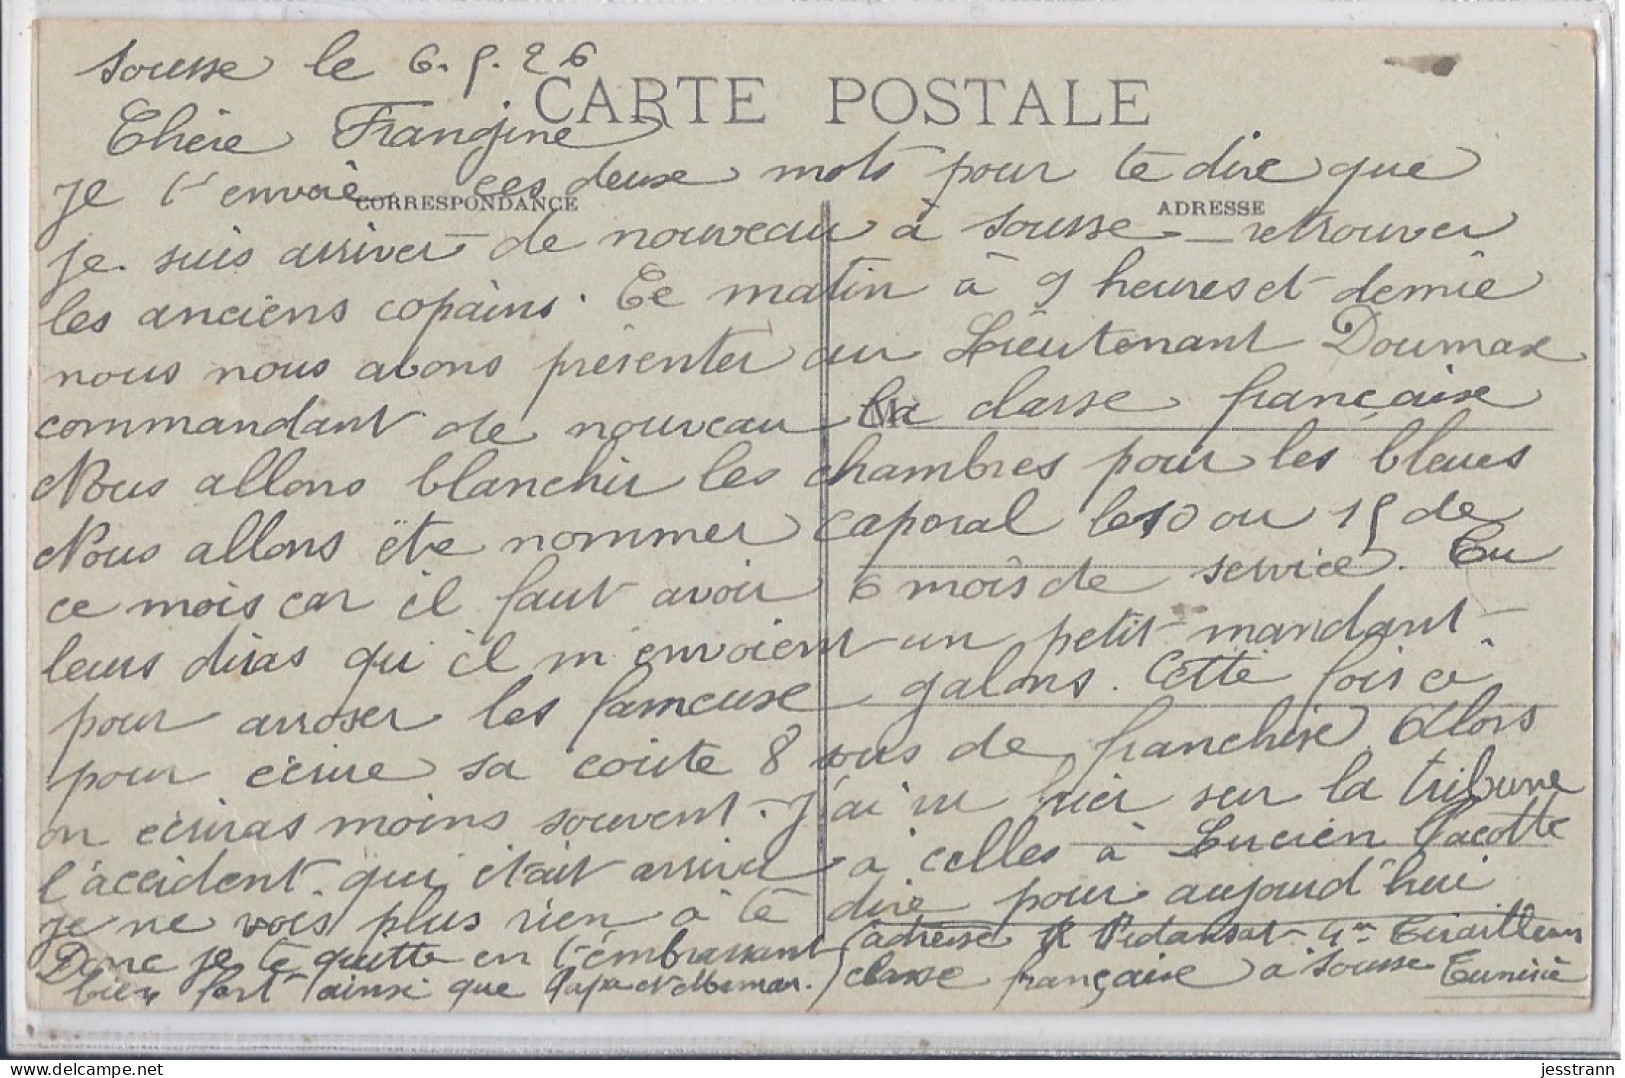 Sousse le 6.5.26
CARTE POSTALE
Chère Frangine
je t'envoie ces deuxe mots pour te dire que
CORRESPONDANCE
ADRESSE
je suis arriver de nouveau à Sousse retrouver
les anciens copains. Ce matin à 9 heures et demie
nous nous avons présenter au Lieutenant Doumax
commandant de nouveau la classe française
Nous allons blanchir les chambres pour les bleues
Nous allons éte nommer caporal le 10 ou 15 de
ce mois car il faut avoir 6 mois de service. Tu
leurs diras qui il m'envoient un petit mandant
pour arroser les fameuse galons. Cette fois ci
pour écrire sa coute 8 sous de franchise Alors
on écriras moins souvent. J'ai vu hier sur la tribune
l'accident qui était arriver à celles à Lucien Pacotte
je ne vois plus rien à te dire pour aujourd'hui
Donc je te quitte en t'embrassant
bien fort ainsi que Papa et Maman.
adresse R Pidansat 4m Tirailleur
classe française à Sousse Tunisie
jesstrann
delcampe.net